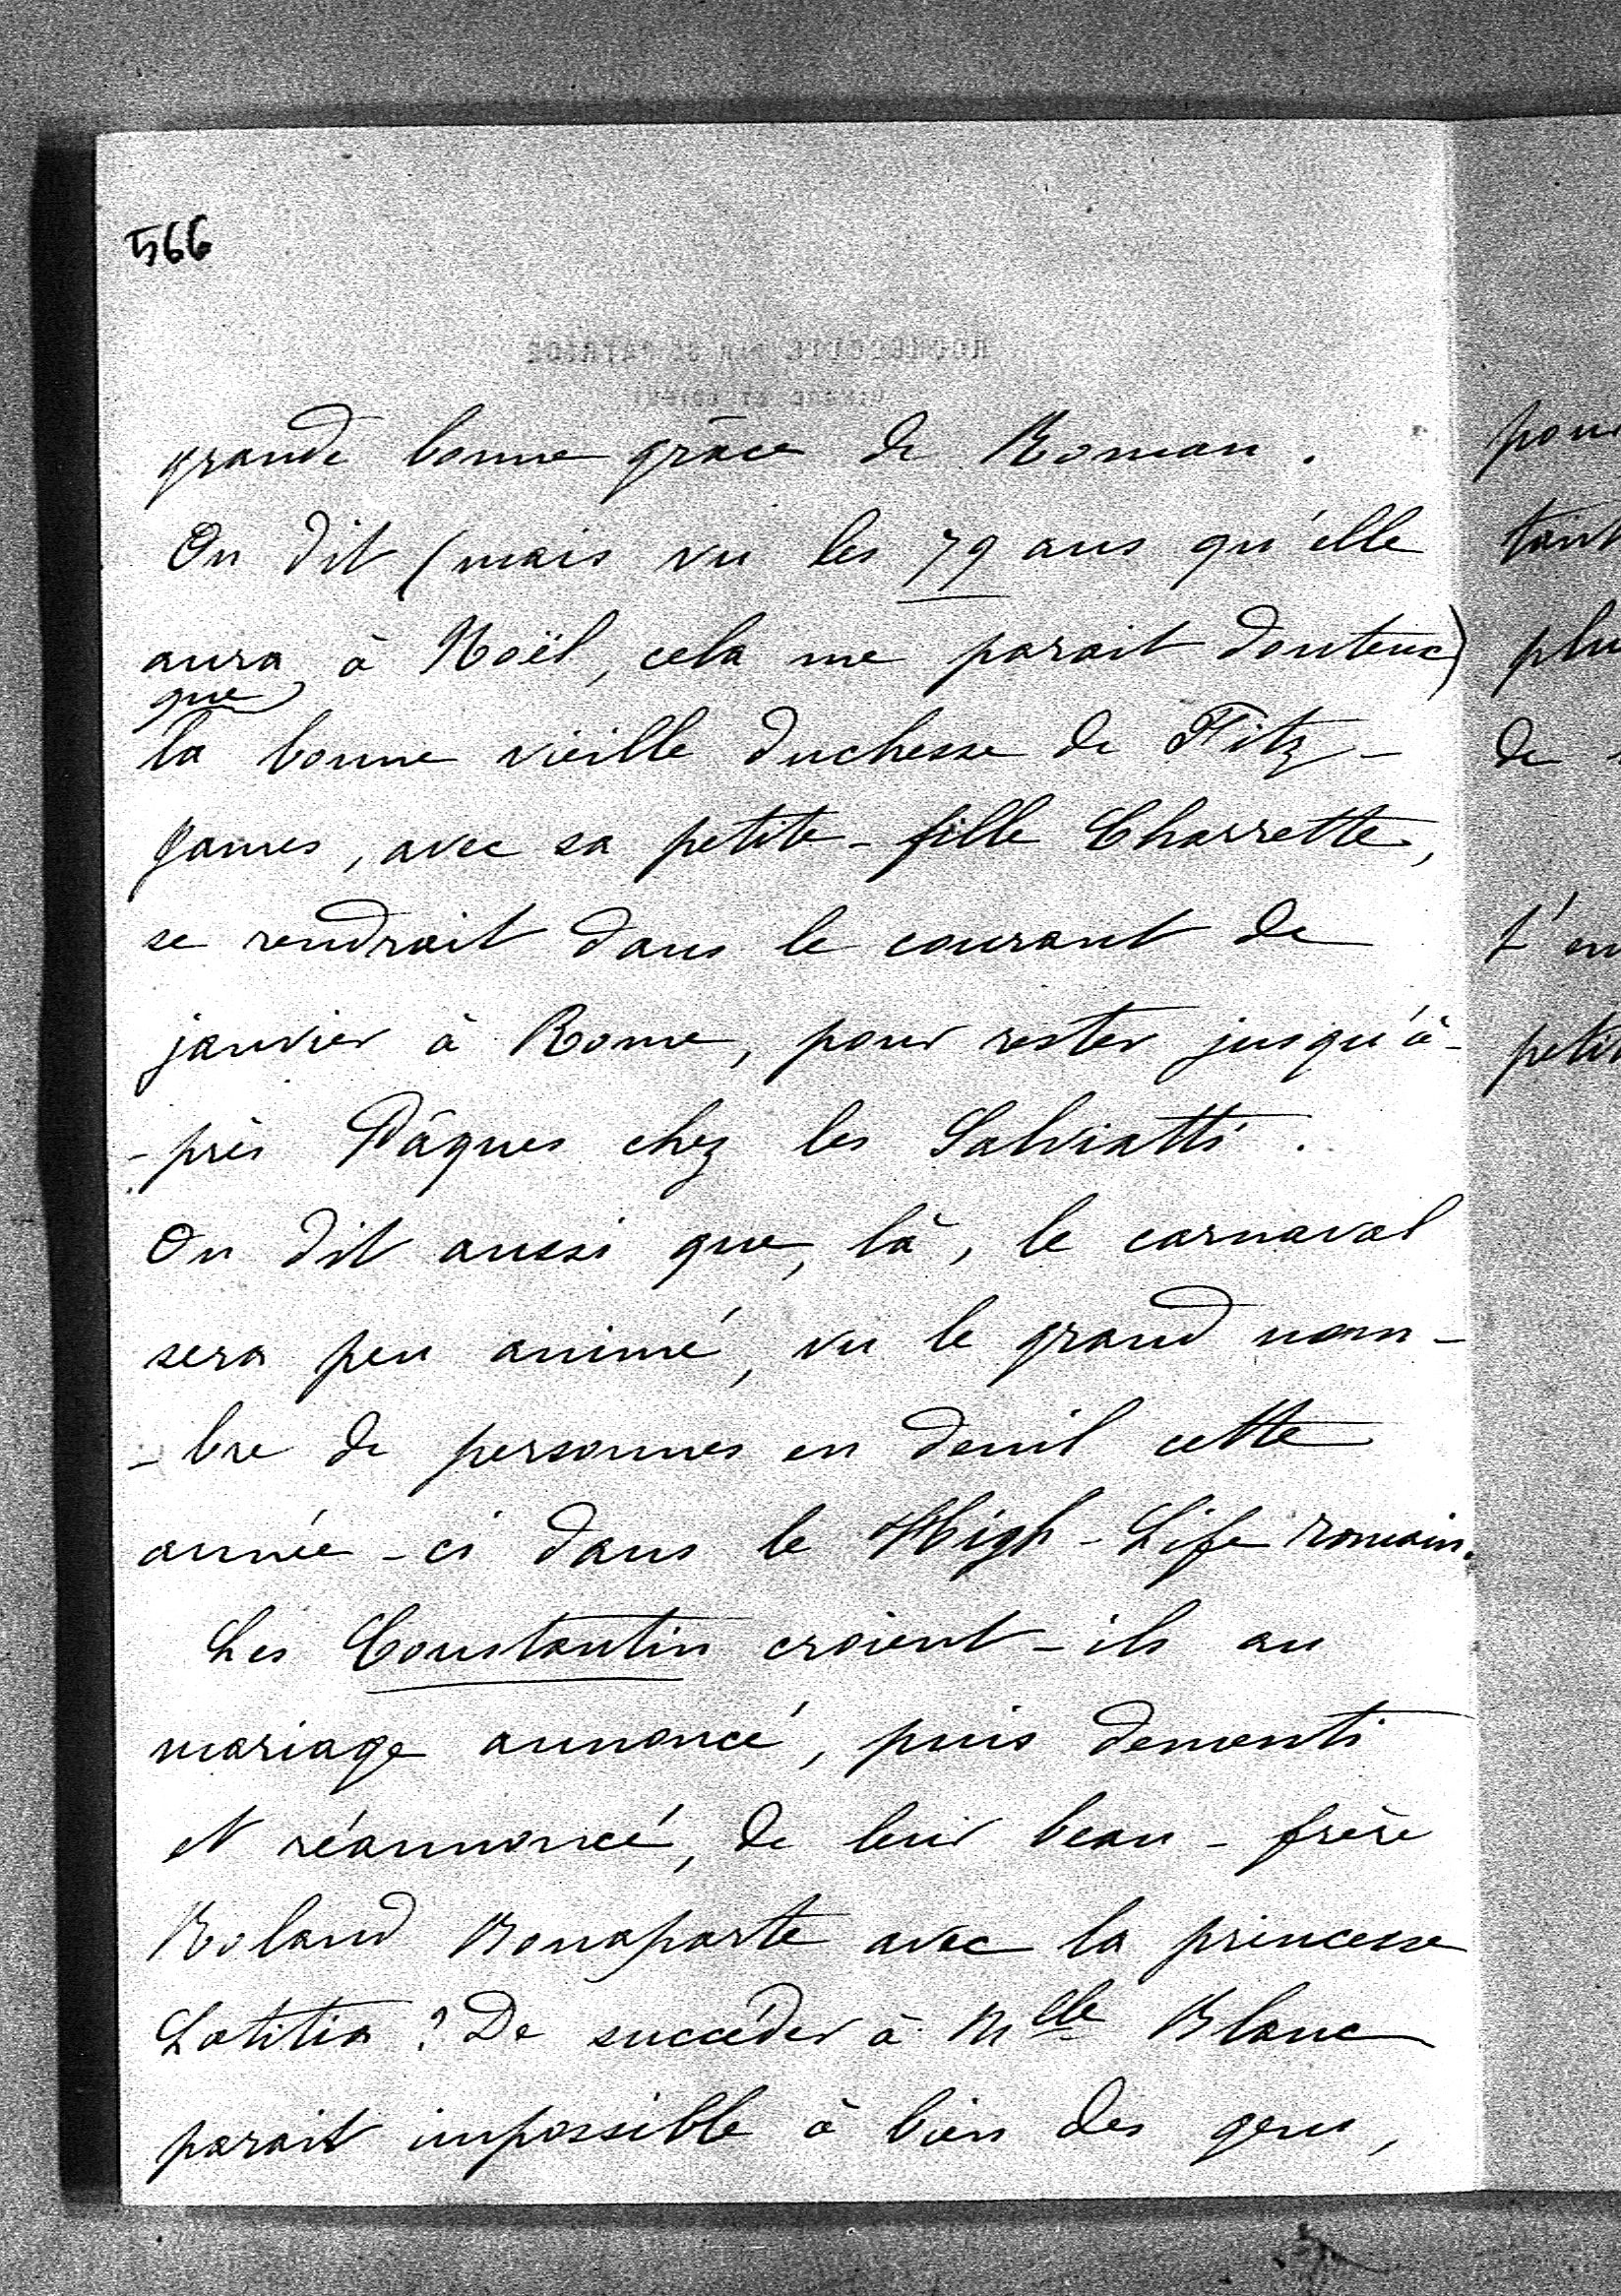 566
grande bonne grâce de Roman.
On dit (mais vu les 79 ans qu'elle
aura à Noël, cela me parait douteux)
que
la bonne vieille duchesse de Fitz-
James, avec sa petite-fille Charrette,
se rendrait dans le courant de
janvier à Rome, pour rester jusqu'à-
-près Pâques chez les Salviatti.
On dit aussi que, là, le carnaval
sera peu animé, vu le grand nom-
-bre de personnes en deuil cette
année-ci dans le High-Life romain.
Les Constantin croient-ils au
mariage annoncé, puis dementi
et réannoncé, de leur beau-frère
Roland Bonaparte avec la princesse
Latitia? De succéder à Mlle Blanc
parait impossible à bien des gens,
pou
tant
plu
de
t'en
petit